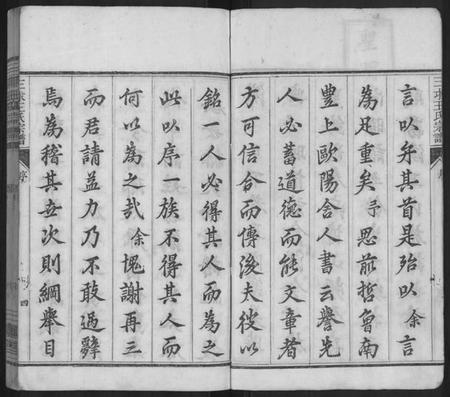 王氏宗譜
序
言以弁其首是殆以余言
為足重矣予思前哲魯南
豐上歐陽舍人書云譽先
人必蓄道德而能文章者
方可信合而傳後夫彼以
銘一人必得其人而為之
此以序一族不得其人而
何以為之哉余愧謝再三
而君請益力乃不敢過辭
焉為稽其世次則綱舉目
王氏宗譜
序
四